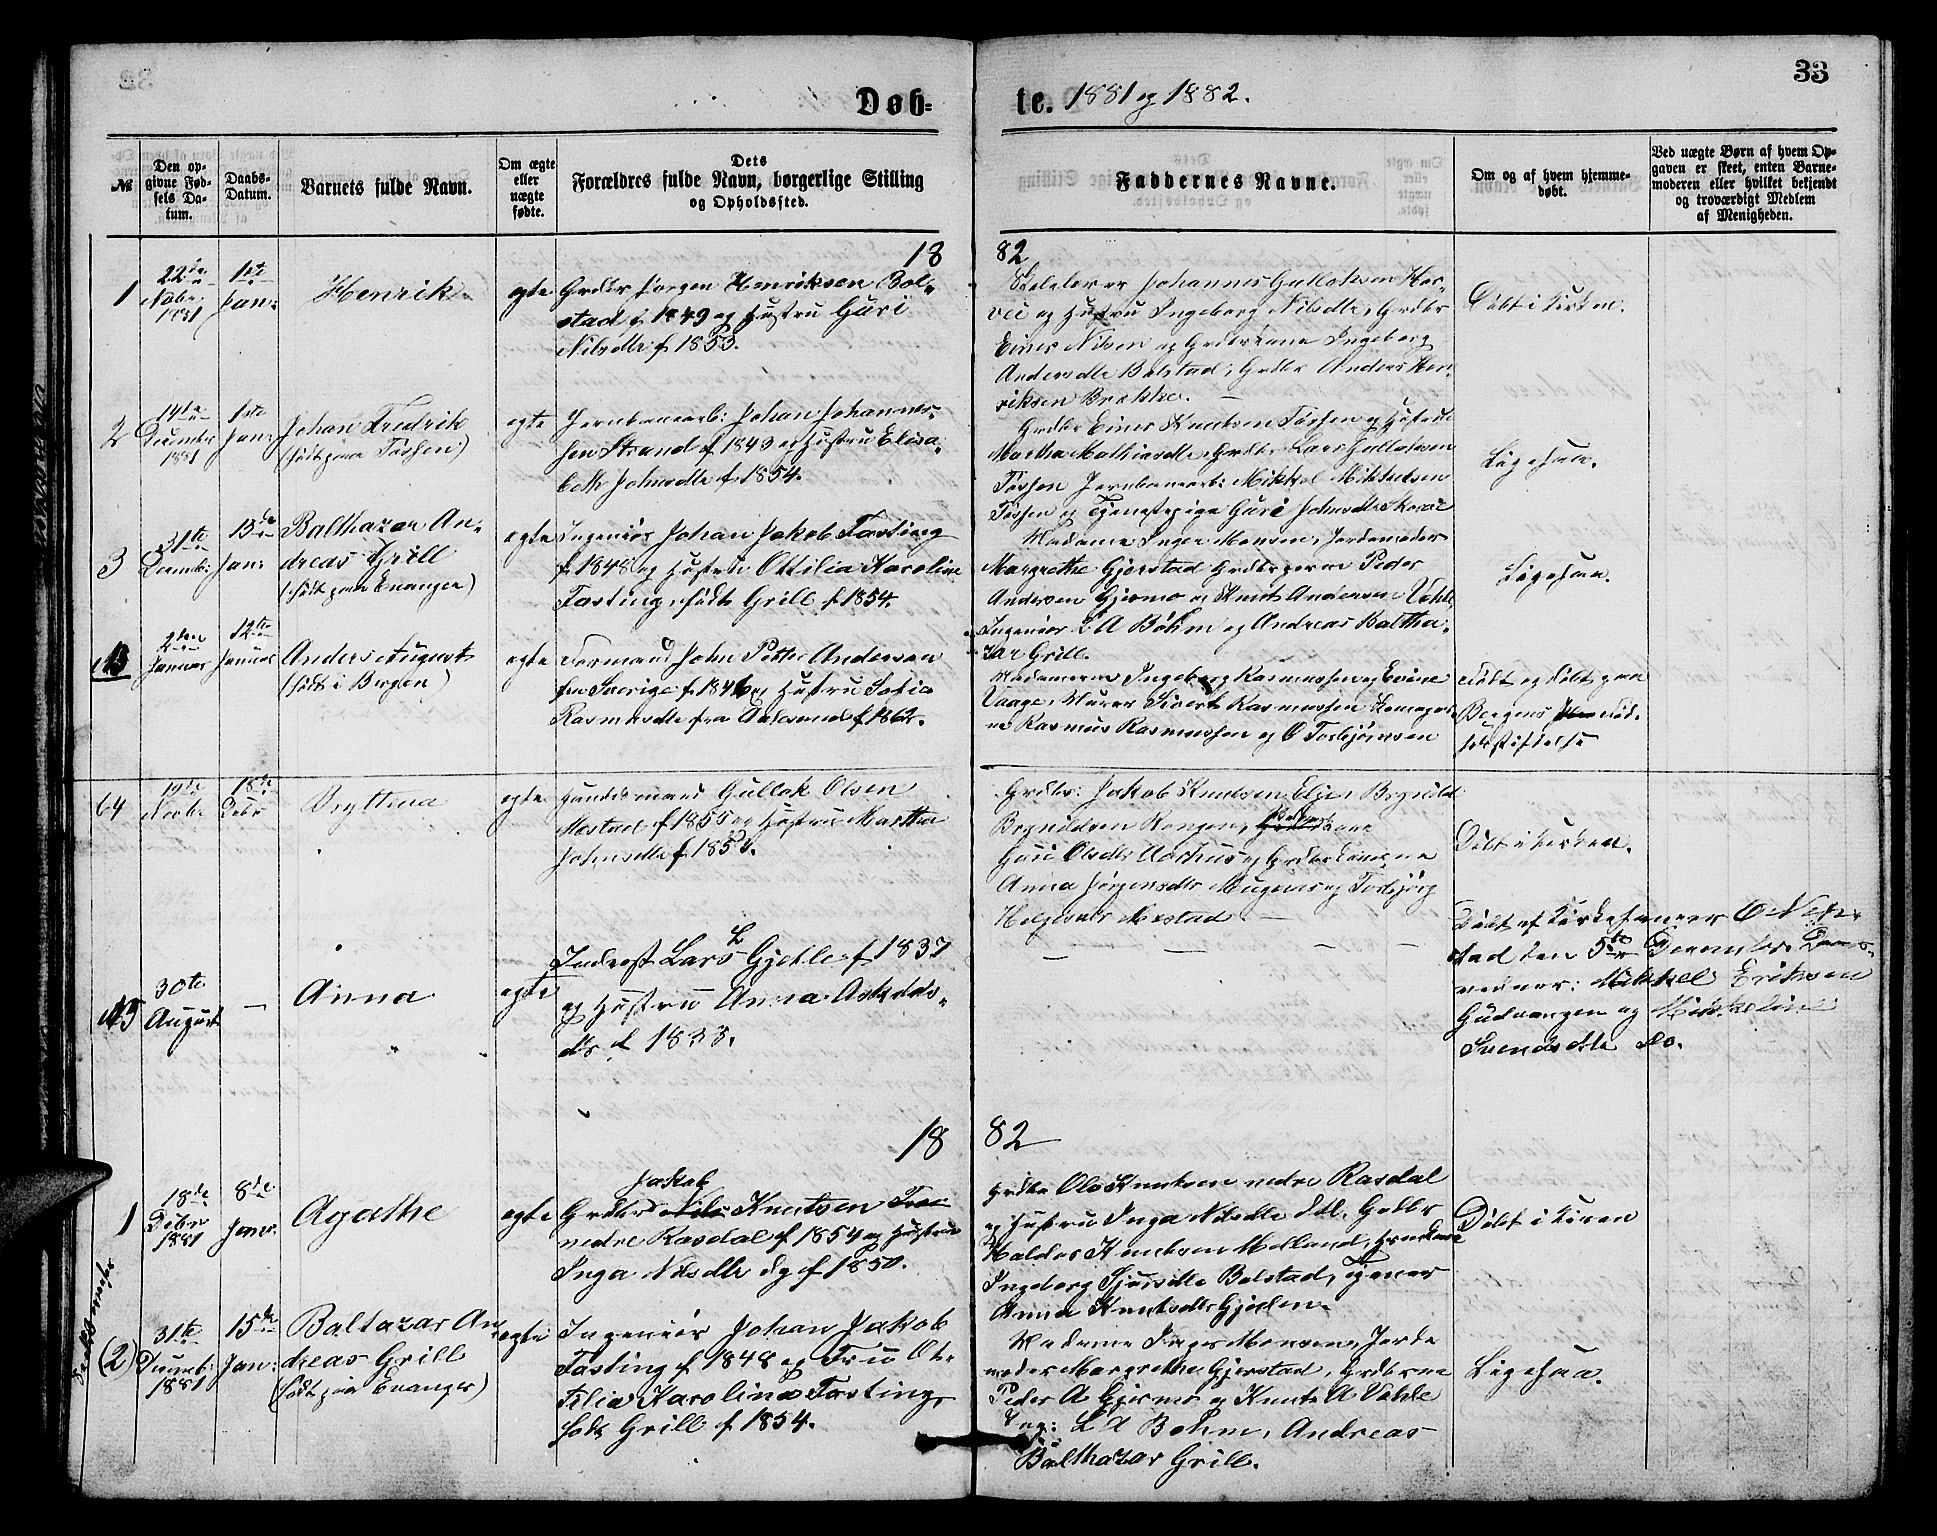 33
Døb-
te. 1881 og 1882.
№
Den op-
givne Fød-
sels Da-
tum.
Daabs-
Datum.
Barnets fulde Navn.
Om ægte
eller
uægte
fødte.
Dets
Forældres fulde Navn, borgerlige Stilling
og Opholdssted.
Faddernes Navne.
Om og af hvem hjemme-
døbt.
Ved uægte Børn af hvem Op-
gaven er skeet, enten Barne-
moderen eller hvilket bekjendt
og troværdigt Medlem
af Menigheden.
18
82
1
22de
Novbr.
1881
1ste
Jan:
Henrik
egte
Grdbr Jørgen Henriksen Bol-
stad f 1849 og Hustru Guri
Nilsdtr f 1853.
Johannes Gullaksen Hor-
vei og Hustru Ingeborg Nilsdtr, Grdbr
Einer Nilsen og Grdbrkone Ingeborg
Andersdtr Bolstad, Grdbr Anders Hen-
riksen Brekke.
Døbt i Kirken.
2
14de
December
1881
1ste
Janr
Johan Fredrik
(født paa Tøssen)
egte
Jernbanearb: Johan Johannes-
sen Strand f 1849 og Hustru Elisa-
beth Johnsdtr f 1854.
Grdbr Einer Knutsen Tøssen og Hustru
Martha Mathiasdtr, Grdbr Lars Gullaksen
Tøssen Jernbanearb: Mikkel Mikkelsen
Tøssen og Tjenestepige Guri Johnsdtr
Ligesaa.
3
31te
Decemb:
13de
Jan:
Balthazar An-
dreas Grill
(født paa Evanger)
egte
Ingeniør Johan Jakob Fasting
f 1848 og Hustru Ottilia Karoline
Fasting, født Grill f 1854.
Madame Inger Monsen, Jordemoder
Margrethe Gjerstad Grdbrgerne Peder
Andersen Gjermo og Knut Andersen Væhle,
Ingeniør L A Böhm og Andreas Baltha-
zar Grill.
Ligesaa.
2den
Januar
12te
Januar
Anders August
(født i Bergen)
egte
Formand John Petter Andersen
fra Sverige f 1846 og Hustru Sofie
Rasmusdtr fra Aalesund f 1862.
Madamerne Ingeborg Rasmussen og Evine
Vaage, Murer Sivert Rasmussen
Rasmus Rasmussen og O Torbjørnsen
Født og døbt paa
Bergens Fød-
selsstiftelse
64
19de
Novbr
18de
Debr
Brytteva
egte
Handelsmand Gullak Olsen
Mestad f 1855 og Hustru Martha
Johnsdtr f 1853.
Grdbr: Jakob Knudsen Elje, Brynild
Brynildsen Rongen,
Guri Olsdtr Aarhus og Grdbrkonerne
Anna Jørgensdtr Mugaas og Torbjørg
Helgesdtr Mestad
Døbt i Kirken.
30te
August
Anna
egte
Inderst Lars L Gjetle f 1837
og Hustru Anna Askelds-
dtr f 1833.
Døbt af Kirkesanger O Ne
stad den 5te December.
vidner: Mikkel Eriksen
Gudvangen og Mikkeline
Svendsdtr do.
18
82
1
18de
Debr
1881
8de
Janr.
Agathe
egte
Jakob
Grdbr Nils Knutsen
nedre Rasdal f 1854 og Hustru
Inga Nilsdtr dg f 1850.
Grdbr Ole Knutsen nedre Rasdal
og Hustru Inga Nilsdtr stl, Grdbr
Haldor Knutsen Midland, Grdkone
Ingeborg Sjursdtr Bolstad, Tjener
Anna Knutsdtr Gjerden
Døbt i Kirken
(2)
31te
Decemb:
1881
15de
Jan:
Baltazar An
dreas Grill
(født paa Evanger)
egte
Ingeniør Johan Jakob
Fasting f 1848 og Fru Ot-
tilia Karolina Fasting,
født Grill f 1854.
Madame Inger Monsen, Jorde
moder Margrethe Gjerstad, Grdbrne
Peder A Gjermo og Knut A Væhle
Ing: L A Böhm, Andreas
Balthazar Grill.
Ligesaa.